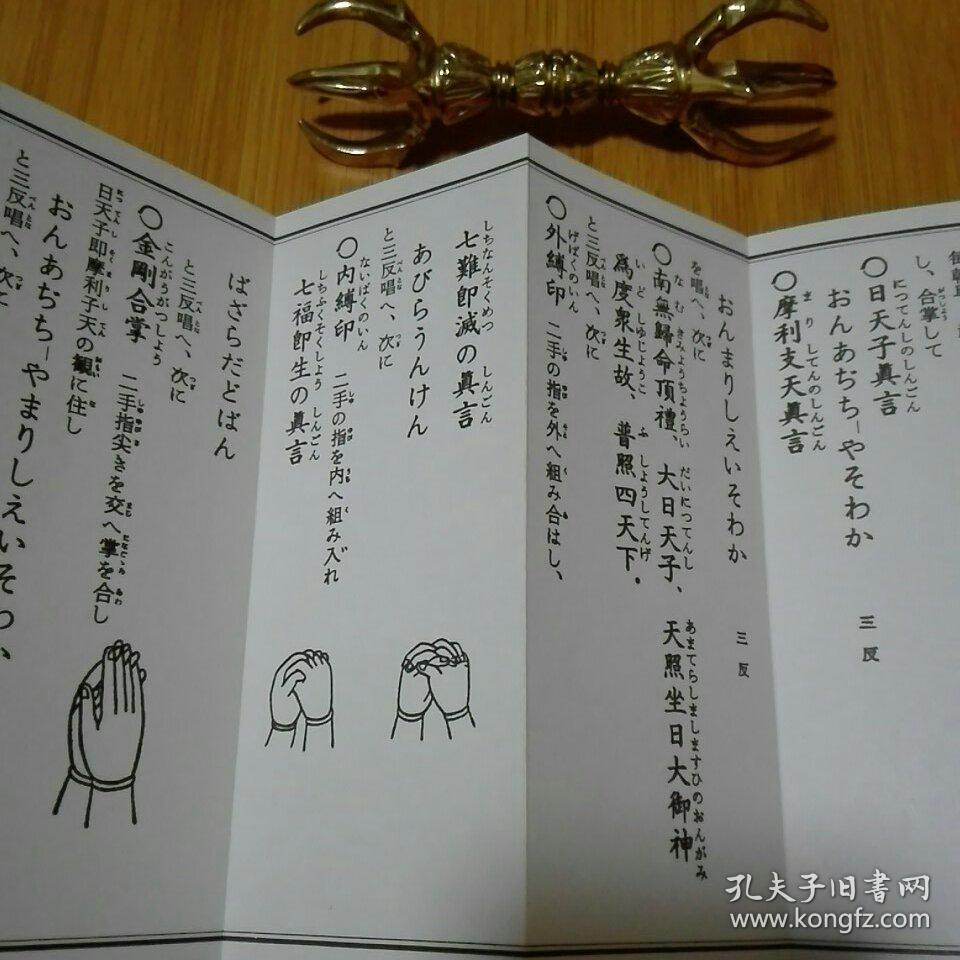 し、合掌して
○日天子眞言
おんあぢちーやそわか 三反
○摩利支天眞言
おんまりしえいそわか 三反
を唱へ、次に
○南無歸命頂禮、大日天子、天照坐日大御神
爲度衆生故、普照四天下.
と三反唱へ、次に
○外縛印 二手の指を外へ組み合はし、
七難即滅の眞言
あびらうんけん
と三反唱へ、次に
○内縛印 二手の指を内へ組み入れ
七福即生の眞言
ばざらだどばん
と三反唱へ、次に
○金剛合掌 二手指尖きを交へ掌を合し
日天子即摩利子天の観に住し
おんあぢちーやまりしえいそわ
と三反唱へ、次に
孔夫子旧书网
www.kongfz.com